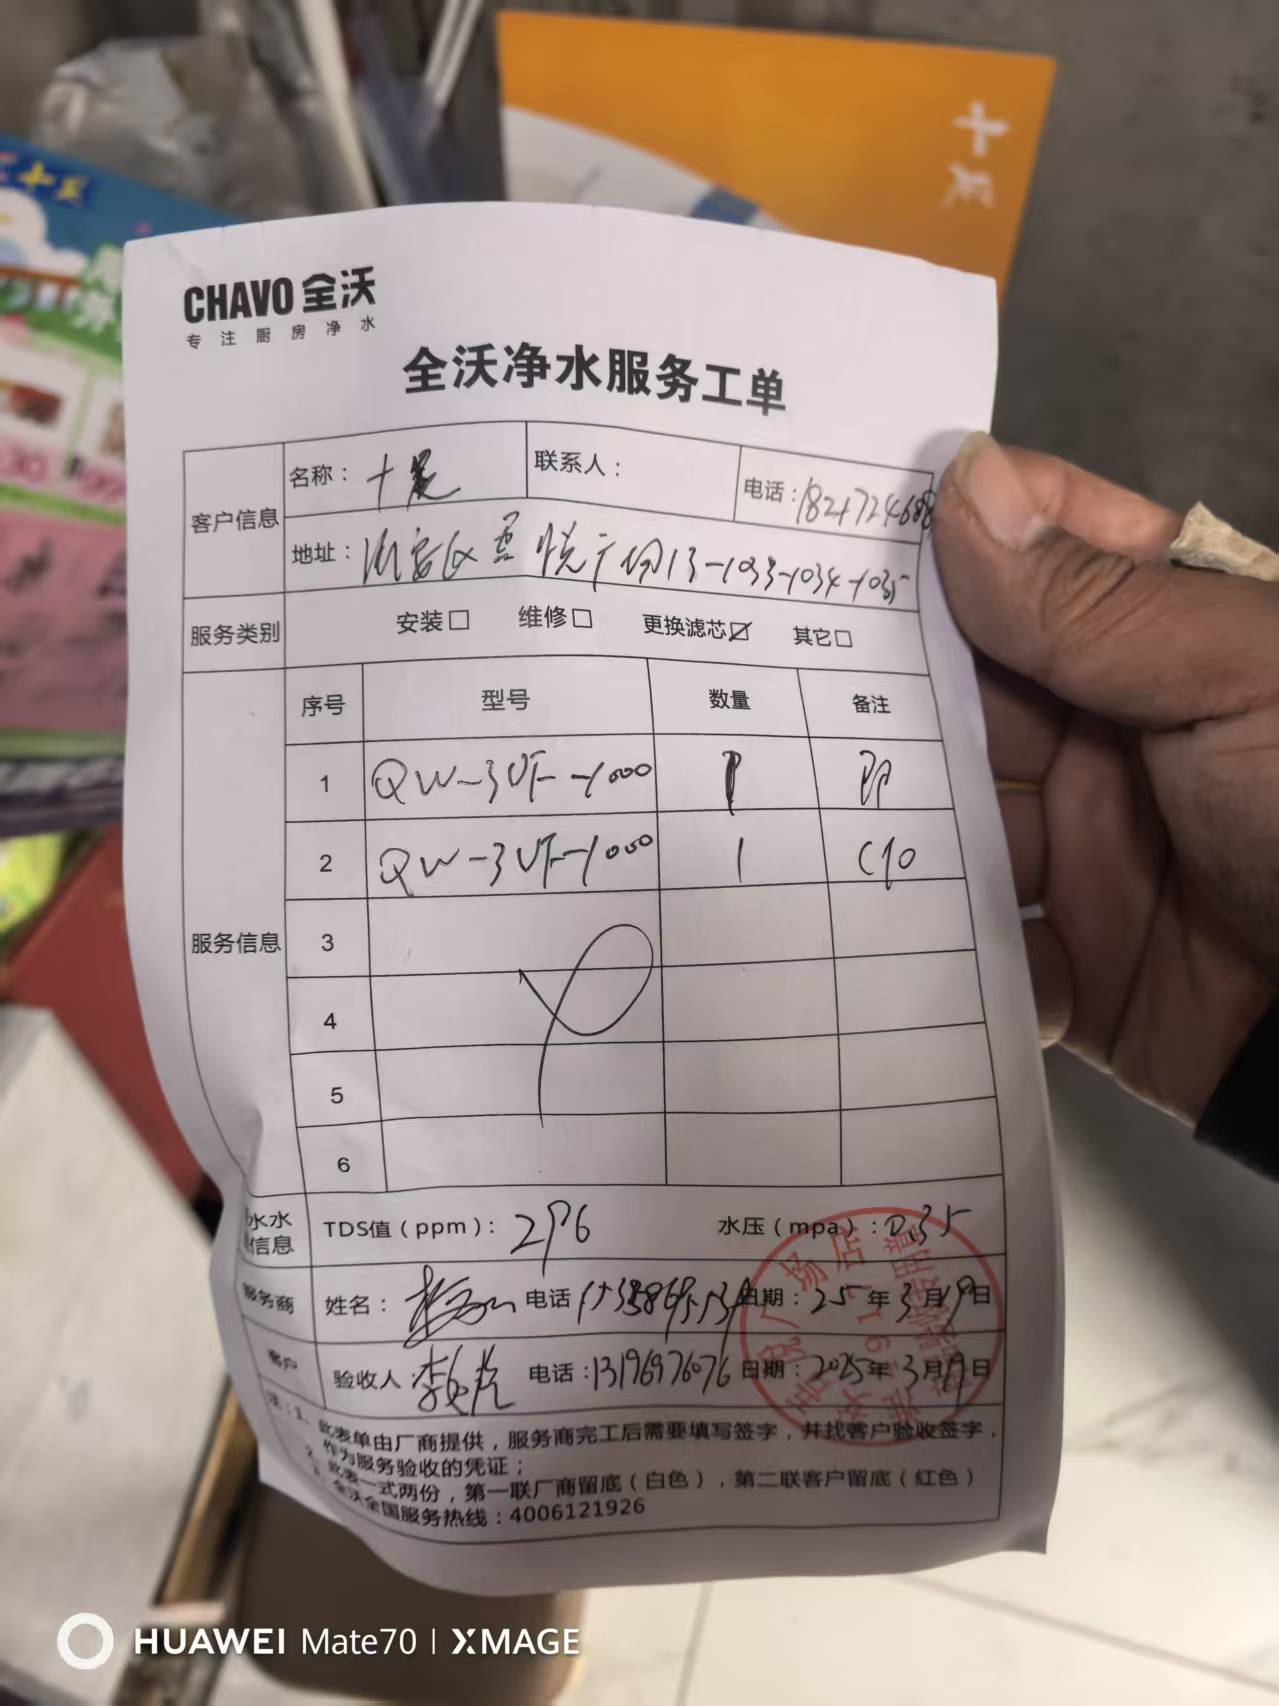 十足
CHAVO 全沃
专注厨房净水
全沃净水服务工单
客户信息
名称：十足
联系人：
电话：
地址：广场13-1033-1034-1035
服务类别
安装□ 维修□ 更换滤芯☑ 其它□
服务信息
序号 型号 数量 备注
1 QW-3UF-1000 1 PP
2 QW-3UF-1000 1 C10
3
4
5
6
水水
信息
TDS值（ppm）：296 水压（mpa）：0.35
服务商 姓名： 电话 日期：25年3月19日
客户 验收人： 电话：13196976076 日期：2025年3月19日
注：1、此表单由厂商提供，服务商完工后需要填写签字，并找客户验收签字，
作为服务验收的凭证；
2、此表一式两份，第一联厂商留底（白色），第二联客户留底（红色）
3、全沃全国服务热线：4006121926
HUAWEI Mate70 | XMAGE